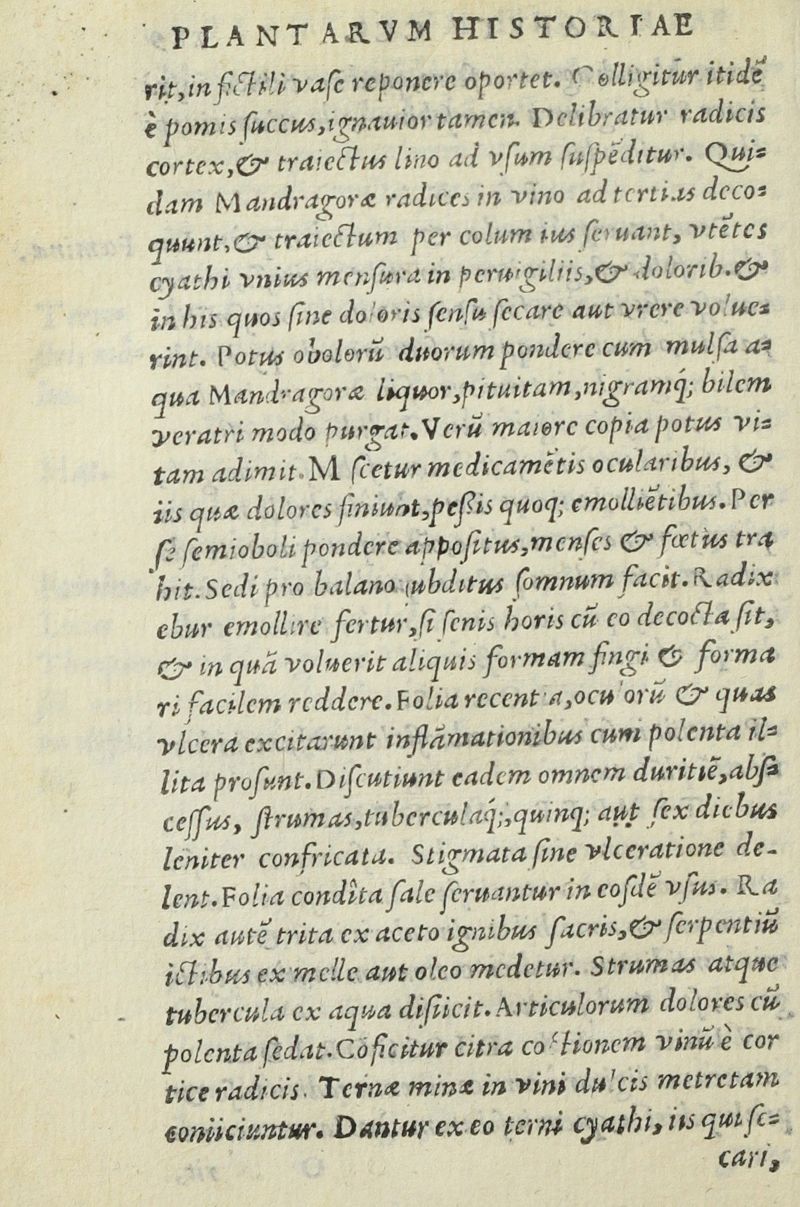 PLANTARVM HISTORIAE
rit, in fictili vase reponere oportet. Colligitur itidē
è pomis succus, ignauior tamen. Delibratur radicis
cortex, & traiectus lino ad vsum suspēditur. Qui=
dam Mandragoræ radices in vino ad tertias deco=
quunt, & traiectum per colum ius seruant, vtētes
cyathi vnius mensura in peruigiliis, & dolorib. &
in his quos sine doloris sensu secare aut vrere volue=
rint. Potus obolorū duorum pondere cum mulsa a=
qua Mandragoræ liquor, pituitam, nigramq́; bilem
veratri modo purgat. Verū maiore copia potus vi=
tam adimit. M scetur medicamētis ocularibus, &
iis quæ dolores finiunt, peßis quoq; emolliētibus. Per
se semioboli pondere appositus, menses & fœtus tra
hit. Sedi pro balano subditus somnum facit. Radix
ebur emollire fertur, si senis horis cū eo decocta sit,
& in quā voluerit aliquis formam fingi & forma
ri facilem reddere. Folia recentia, oculorū & quas
vlcera excitarunt inflāmationibus cum polenta il=
lita prosunt. Discutiunt eadem omnem duritiē, abs=
cessus, strumas, tuberculaq́;, quinq; aut sex diebus
leniter confricata. Stigmata sine vlceratione de-
lent. Folia condîta sale seruantur in eosdē vsus. Ra
dix autē trita ex aceto ignibus sacris, & serpentiū
ictibus ex melle aut oleo medetur. Strumas atque
tubercula ex aqua disiicit. Articulorum dolores cū
polenta sedat. Coficitur citra coctionem vinū è cor
tice radicis. Ternæ minæ in vini dulcis metretam
coniiciuntur. Dantur ex eo terni cyathi, iis qui se=
cari,